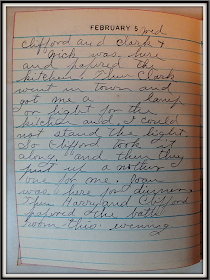 FEBRUARY 5 Wed
Clifford and Clark &
Dick was here
and papered the
kitchen. Then Clark
went in town and
got me a " lamp
or light for the
kitchen and I could
not stand the light.
So Clifford took it
along. and then they
put up a nother
one for me. Joan
was here for dinner.
Then Harry and Clifford
papered the bath
room this evening